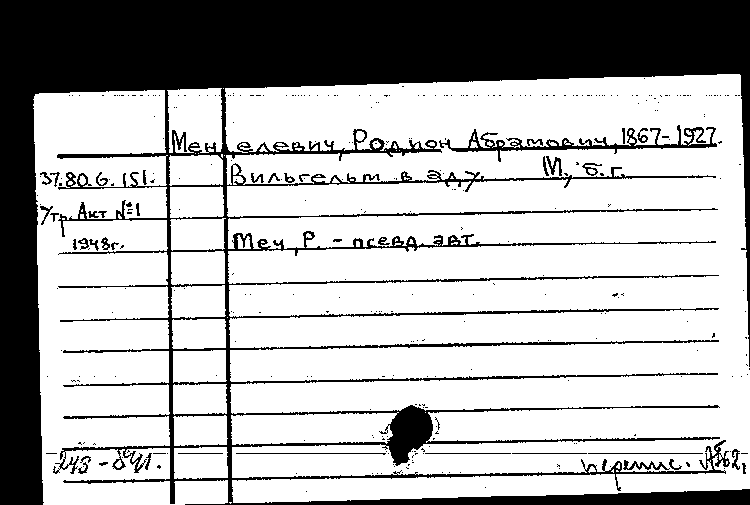 Менделевич, Родион Абрамович, 1867-1927.
37.80.6.151. Вильгельм в аду. М., б.г.
Утр. Акт №1
1948г. Меч, Р. - псевд. авт.
243 -
перепис.